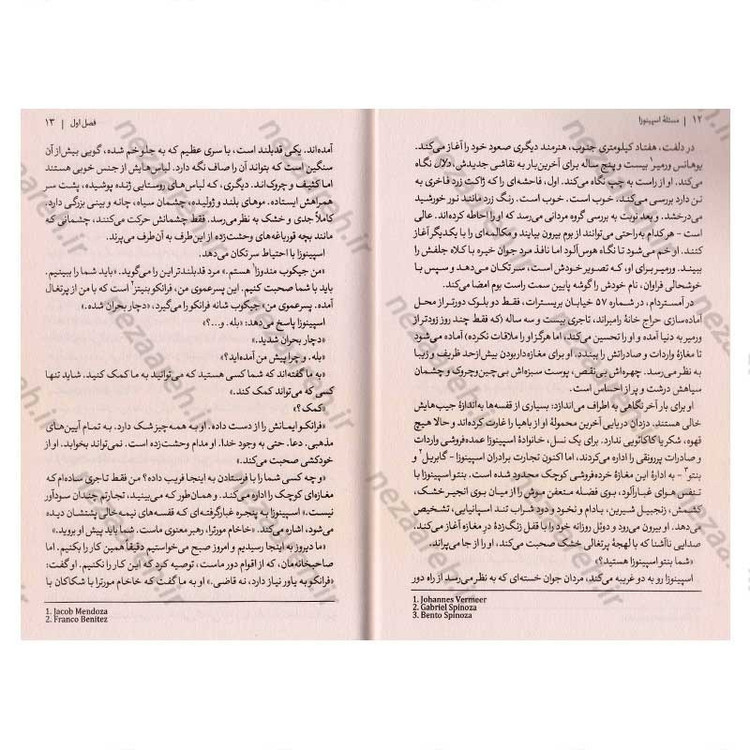 ۱۲ | مسئلهٔ اسپینوزا
در دلفت، هفتاد کیلومتری جنوب، هنرمند دیگری صعود خود را آغاز می‌کند.
یوهانس ورمیر¹ بیست و پنج ساله برای آخرین‌بار به نقاشی جدیدش، دلال نگاه
می‌کند. او از راست به چپ نگاه می‌کند. اول، فاحشه‌ای که ژاکت زرد فاخری به
تن دارد بررسی می‌کند. خوب است. خوب است. رنگ زرد مانند نور خورشید
می‌درخشد. و بعد نوبت به بررسی گروه مردانی می‌رسد که او را احاطه کرده‌اند. عالی
است – هرکدام به‌راحتی می‌توانند از بوم بیرون بیایند و مکالمه‌ای را با یکدیگر آغاز
کنند. او خم می‌شود تا نگاه هوس‌آلود اما نافذ مرد جوان خیره با کلاه جلفش را
ببیند. ورمیر برای او، که تصویر خودش است، سر تکان می‌دهد و سپس با
خوشحالی فراوان، نام خودش را گوشه پایین سمت راست بوم امضا می‌کند.
در آمستردام، در شماره ۵۷ خیابان بریسترات، فقط دو بلوک دورتر از محل
آماده‌سازی حراج خانهٔ رامبراند، تاجری بیست و سه ساله (که فقط چند روز زودتر از
ورمیر به دنیا آمده و او را تحسین می‌کند، اما هرگز او را ملاقات نکرده) آماده می‌شود
تا مغازهٔ واردات و صادراتش را ببندد. او برای مغازه‌داربودن بیش‌ازحد ظریف و زیبا
به نظر می‌رسد. چهره‌اش بی‌نقص، پوست سبزه‌اش بی‌چین‌وچروک و چشمان
سیاهش درشت و پر از احساس است.
او برای بار آخر نگاهی به اطراف می‌اندازد: بسیاری از قفسه‌ها به‌اندازهٔ جیب‌هایش
خالی هستند. دزدان دریایی آخرین محمولهٔ او از باهیا را غارت کرده‌اند و حالا هیچ
قهوه، شکر یا کاکائویی ندارد. برای یک نسل، خانوادهٔ اسپینوزا عمده‌فروشی واردات
و صادرات پررونقی را اداره می‌کردند، اما اکنون تجارت برادران اسپینوزا – گابریل² و
بنتو³ – به ادارهٔ این مغازهٔ خرده‌فروشی کوچک محدود شده است. بنتو اسپینوزا با
تنفس هوای غبارآلود، بوی فضله متعفن موش را از میان بوی انجیر خشک،
کشمش، زنجبیل شیرین، بادام و نخود و دود شراب تند اسپانیایی، تشخیص
می‌دهد. او بیرون می‌رود و دوئل روزانه خود را با قفل زنگ‌زدهٔ درِ مغازه آغاز می‌کند.
صدایی ناآشنا که با لهجهٔ پرتغالی خشک صحبت می‌کند، او را از جا می‌پراند.
«شما بنتو اسپینوزا هستید؟»
اسپینوزا رو به دو غریبه می‌کند، مردان جوان خسته‌ای که به نظر می‌رسد از راه دور
1. Johannes Vermeer
2. Gabriel Spinoza
3. Bento Spinoza
فصل اول | ۱۳
آمده‌اند. یکی قدبلند است، با سری عظیم که به جلو خم شده، گویی بیش‌از آن
سنگین است که بتواند آن را صاف نگه دارد. لباس‌هایش از جنس خوبی هستند
اما کثیف و چروک‌اند. دیگری، که لباس‌های روستایی ژنده پوشیده، پشت سر
همراهش ایستاده. موهای بلند و ژولیده، چشمان سیاه، چانه و بینی بزرگی دارد.
کاملاً جدی و خشک به نظر می‌رسد. فقط چشمانش حرکت می‌کنند، چشمانی که
مانند بچه قورباغه‌های وحشت‌زده از این‌طرف به آن‌طرف می‌پرند.
اسپینوزا با احتیاط سر تکان می‌دهد.
«من جیکوب مندوزا¹ هستم.» مرد قدبلندتر این را می‌گوید. «باید شما را ببینیم.
باید با شما صحبت کنیم. این پسرعموی من، فرانکو بنیتز² است که با من از پرتغال
آمده. پسرعموی من،» جیکوب شانه فرانکو را می‌گیرد، «دچار بحران شده.»
اسپینوزا پاسخ می‌دهد: «بله. و…؟»
«دچار بحران شدید.»
«بله. و چرا پیش من آمده‌اید؟»
«به ما گفته‌اند که شما کسی هستید که می‌توانید به ما کمک کنید. شاید تنها
کسی که می‌تواند کمک کند.»
«کمک؟»
«فرانکو ایمانش را از دست داده. او به همه‌چیز شک دارد. به تمام آیین‌های
مذهبی. دعا. حتی به وجود خدا. او مدام وحشت‌زده است. نمی‌تواند بخوابد. او از
خودکشی صحبت می‌کند.»
«و چه کسی شما را با فرستادن به اینجا فریب داده؟ من فقط تاجری ساده‌ام که
مغازه‌ای کوچک را اداره می‌کند. و همان‌طور که می‌بینید، تجارتم چندان سودآور
نیست.» اسپینوزا به پنجره غبارگرفته‌ای که قفسه‌های نیمه‌خالی پشتشان دیده
می‌شود، اشاره می‌کند. «خاخام مورترا، رهبر معنوی ماست. شما باید پیش او بروید.»
«ما دیروز به اینجا رسیدیم و امروز صبح می‌خواستیم دقیقاً همین کار را بکنیم. اما
صاحبخانه‌مان، که از اقوام دور ماست، توصیه کرد که این کار را نکنیم. او گفت:
«فرانکو به یاور نیاز دارد، نه قاضی.» او به ما گفت که خاخام مورترا با شکاکان با
1. Jacob Mendoza
2. Franco Benitez
nezaareh.ir